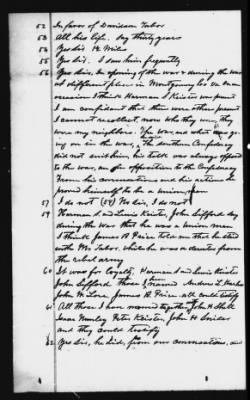 52 In favor of Davidson Tabor
53 All his life. Say thirty years
54 Yes sir. 1½ Miles
55 Yes sir. I saw him frequently
56 Yes sir. In opening of the war & during the war
at different places in Montgomery Co Va on an
occasion I think Harman S Keister was present
I am confident that there were others present
I cannot recollect, now who they were, they
were my neighbors. The war, and what was go-
ing on in the war, the Southern Confederacy
did not suit him, his talk was always opposed
to the war, an opposition to the Confederacy
From his conversations and his actions he
proved himself to be a union man
57 I do not (58) No sir, I do not
59 Harman S. and Lewis Keister, John Lifford say
during the war that he was a union man
I think James R Price told me that he staid
with Mr Tabor, while he was a deserter from
the rebel army
60 It was for loyalty. Harman S. and Lewis Keister
John Lifford those I named Andrew L
John W. Lore, James R. Price. all could testify
61 All those I have named together John H Shell
Isaac Peter Keister, John H Snider
and they could testify
62 Yes sir, he did, from our conversations, and